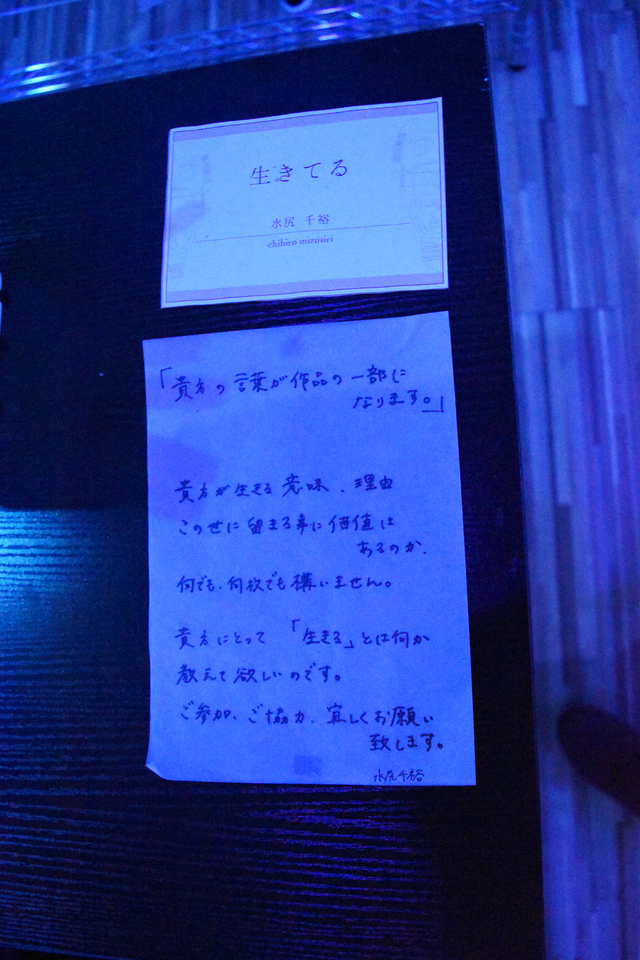 生きてる
水尻 千裕
chihiro mizusiri
「貴方の言葉が作品の一部に
なります。」
貴方が生きる意味、理由
この世に留まる事に価値は
あるのか、
何でも、何枚でも構いません。
貴方にとって「生きる」とは何か
教えて欲しいのです。
ご参加、ご協力、宜しくお願い
致します。
水尻千裕